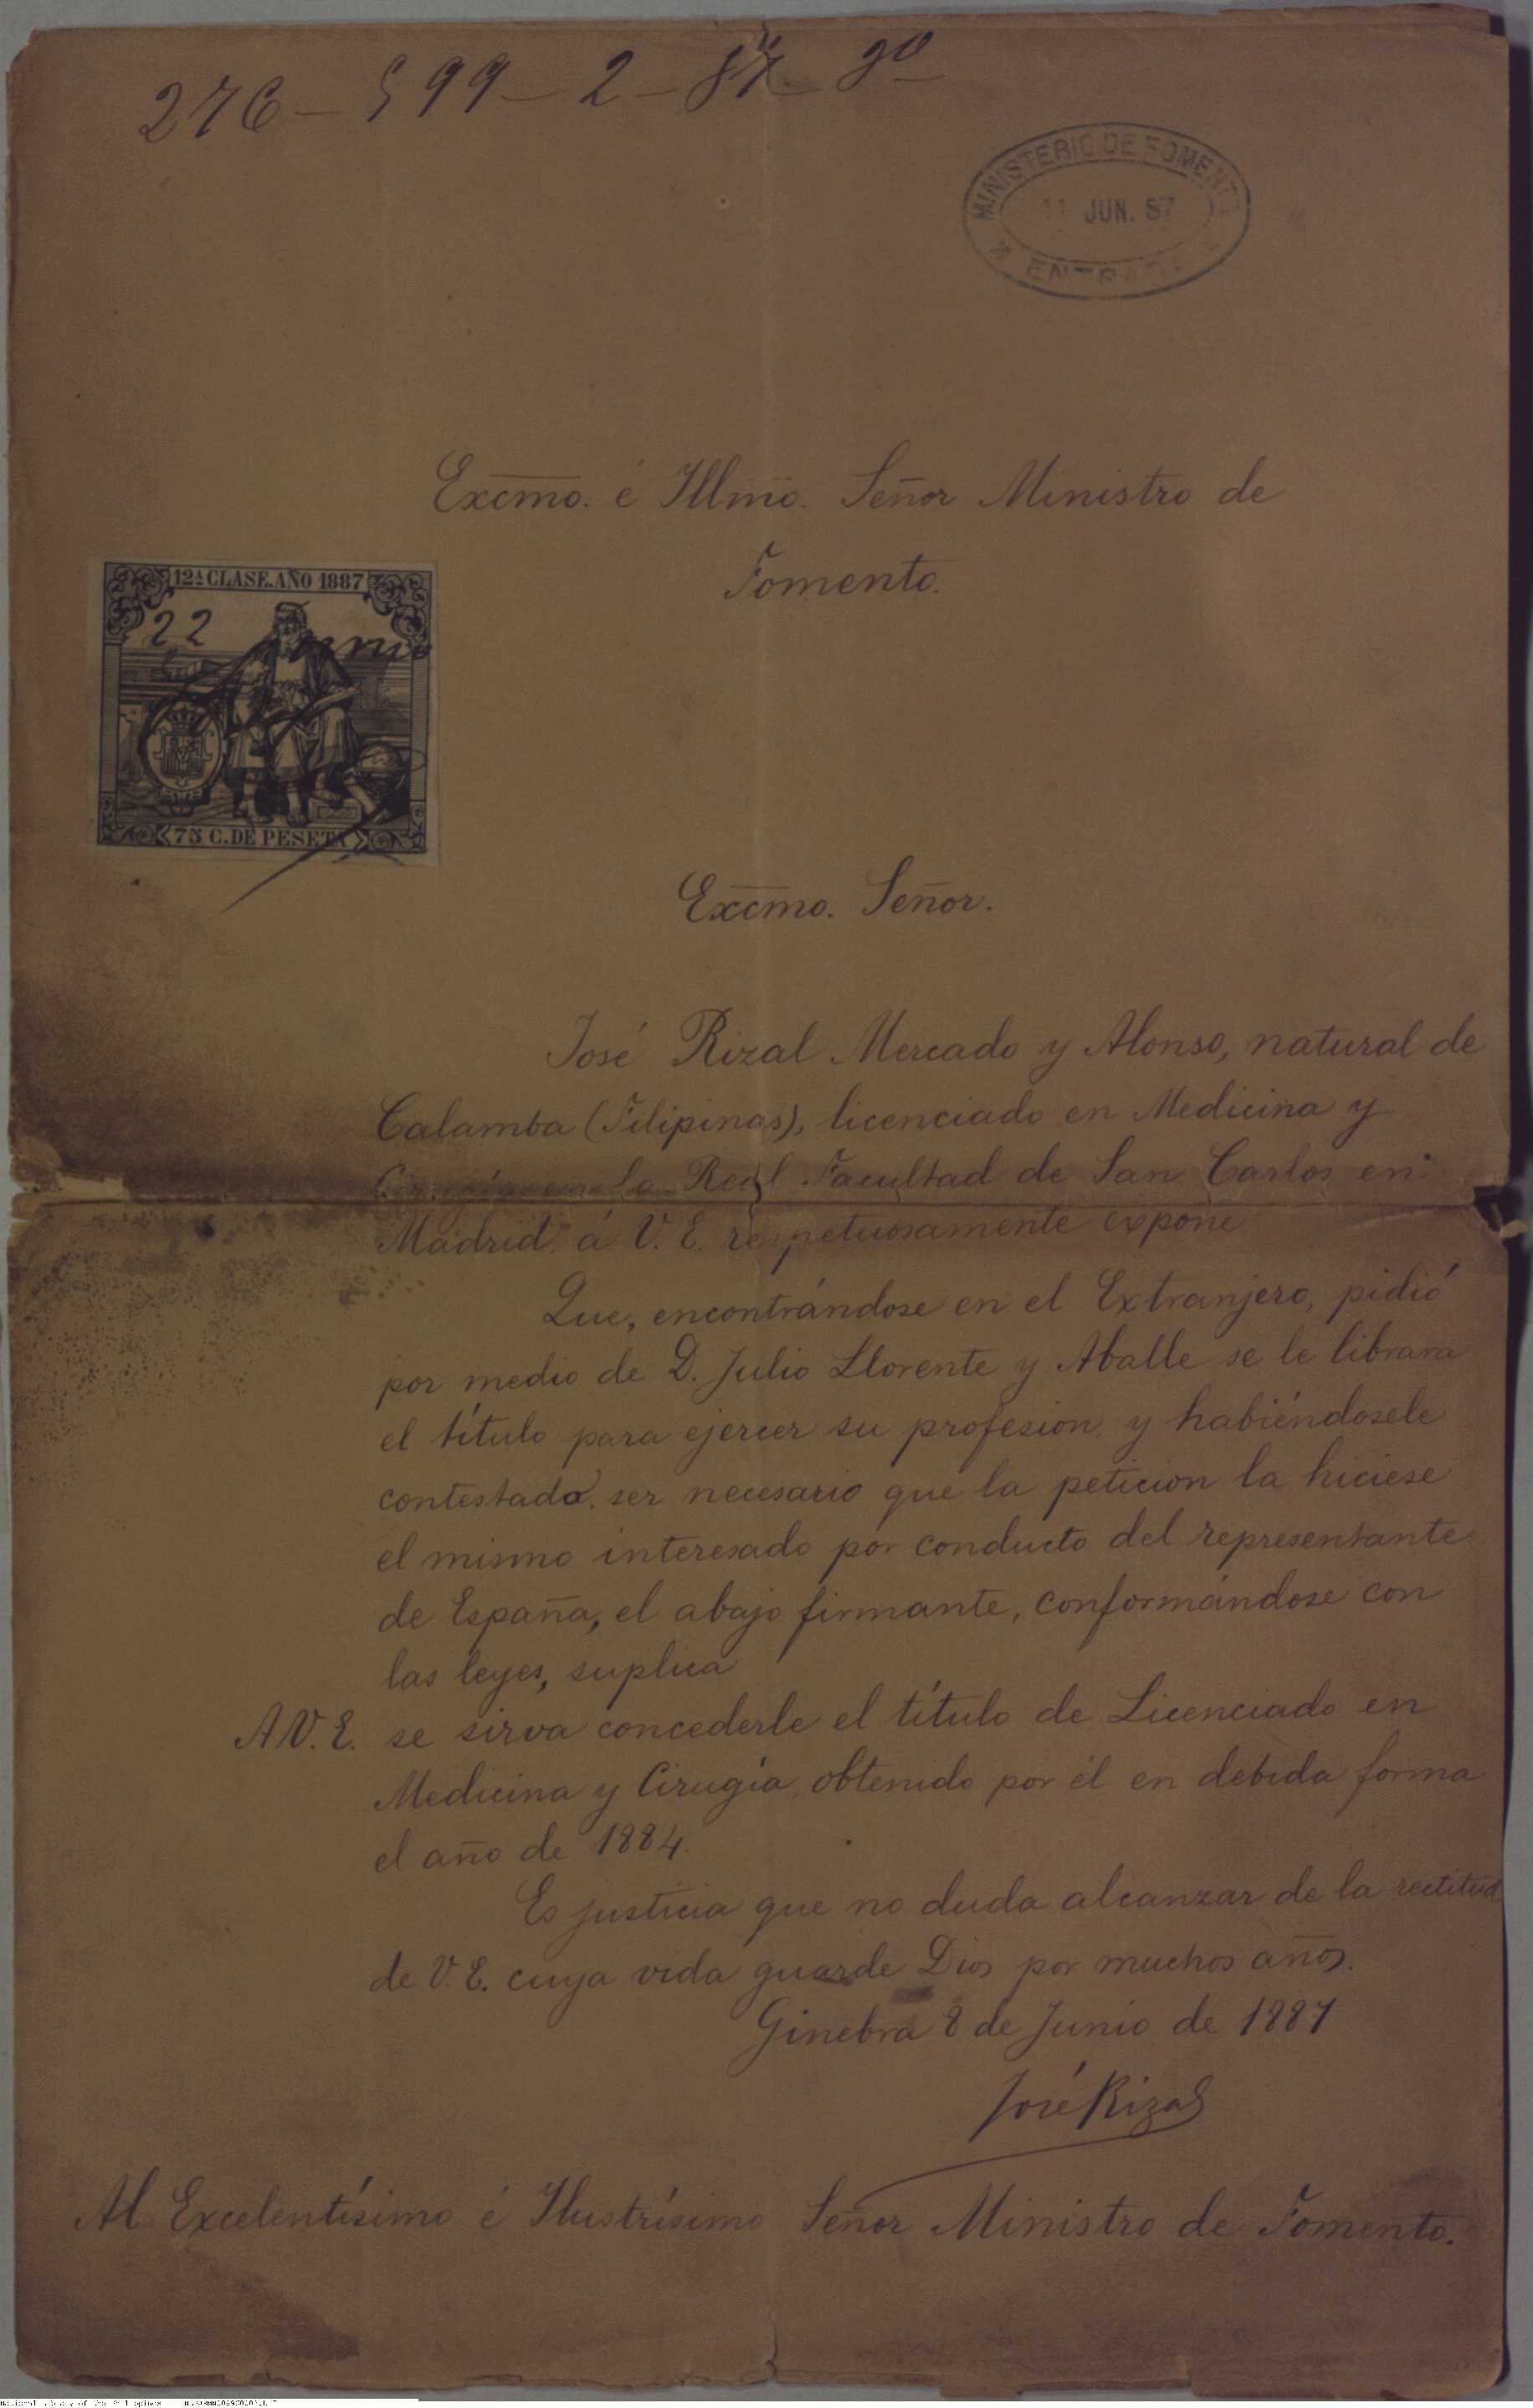 276 - 599 - 2 - 
MINISTERIO DE FOMENTO
11 JUN. 87
ENTRADA
Excmo. é Illmo. Señor Ministro de
Fomento.
12ª CLASE. AÑO 1887
22 Junio
75 C. DE PESETA
Excmo. Señor.
José Rizal Mercado y Alonso, natural de
Calamba (Filipinas), licenciado en Medicina y
Cirugía en la Real Facultad de San Carlos en
Madrid á V. E. respetuosamente expone
Que, encontrándose en el Extranjero, pidió
por medio de D. Julio Llorente y Aballe se le librara
el título para ejercer su profesion, y habiéndosele
contestado ser necesario que la peticion la hiciese
el mismo interesado por conducto del representante
de España, el abajo firmante, conformándose con
las leyes, suplica
A V. E. se sirva concederle el título de Licenciado en
Medicina y Cirugía, obtenido por él en debida forma
el año de 1884.
Es justicia que no duda alcanzar de la rectitud
de V. E. cuya vida guarde Dios por muchos años.
Ginebra 8 de Junio de 1887
José Rizal
Al Excelentísimo é Ilustrísimo Señor Ministro de Fomento.
National Library of the Philippines